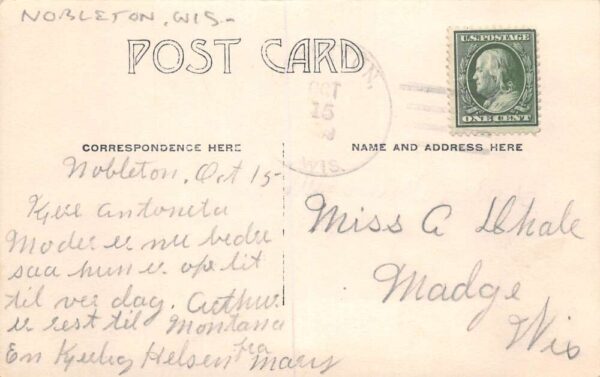 NOBLETON, WIS-
POST CARD
OCT
15
WIS.
U.S. POSTAGE
ONE CENT
CORRESPONDENCE HERE
NAME AND ADDRESS HERE
Nobleton, Oct 15-
Kjere Antoneta
Moder er nu bedre
saa hun er ope lit
til ver dag. Arthur
er rest til Montana
En Kjerlig Helsen fra Mary
Miss A
Madge
Wis